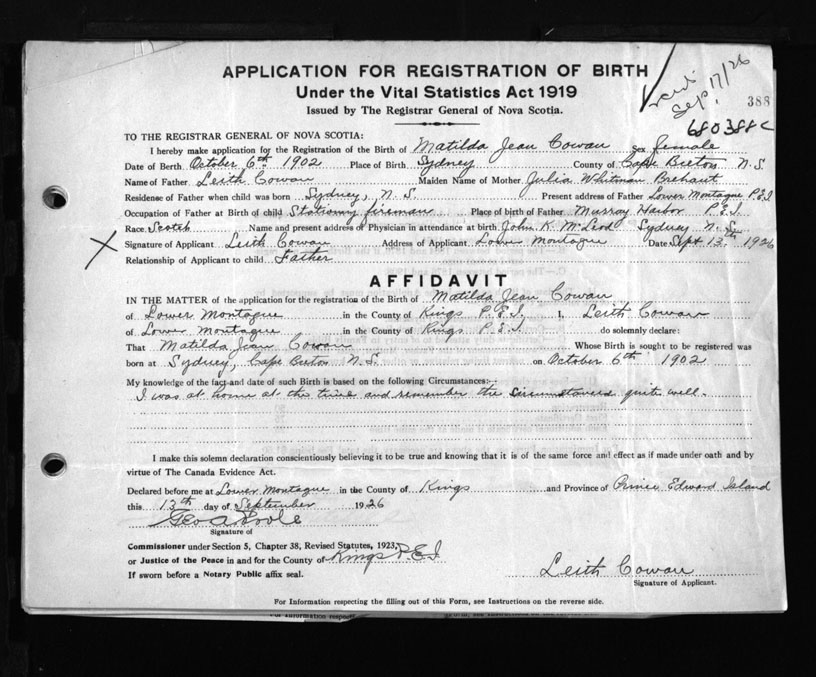 APPLICATION FOR REGISTRATION OF BIRTH
Under the Vital Statistics Act 1919
Issued by The Registrar General of Nova Scotia.
Sep. 17/26
388
680388C
TO THE REGISTRAR GENERAL OF NOVA SCOTIA:
I hereby make application for the Registration of the Birth of Matilda Jean Cowan Sex female
Date of Berth October 6th 1902 Place of Birth Sydney County of Cape Breton N.S
Name of Father Leith Cowan Maiden Name of Mother Julia Whitman Brehaut
Residense of Father when child was born Sydney, N.S. Present address of Father Lower Montague P.E.I
Occupation of Father at Birth of child Stationary fireman Place of birth of Father Murray Harbor P.E.I.
Race Scotch Name and present address of Physician in attendance at birth John K. McLeod Sydney N.S.
X Signature of Applicant Leith Cowan Address of Applicant Lower Montague Date Sept 13th 1926
Relationship of Applicant to child Father
AFFIDAVIT
IN THE MATTER of the application for the registration of the Birth of Matilda Jean Cowan
of Lower Montague in the County of Kings P.E.I. I, Leith Cowan
of Lower Montague in the County of Kings P.E.I. do solemnly declare:
That Matilda Jean Cowan Whose Birth is sought to be registered was
born at Sydney, Cape Breton N.S. on October 6th 1902
My knowledge of the fact and date of such Birth is based on the following Circumstances:-
I was at home at the time and remember the circumstances quite well.
I make this solemn declaration conscientiously believing it to be true and knowing that it is of the same force and effect as if made under oath and by
virtue of The Canada Evidence Act.
Declared before me at Lower Montague in the County of Kings and Province of Prince Edward Island
this 13th day of September 1926
Geo A Poole
Signature of
Commissioner under Section 5, Chapter 38, Revised Statutes, 1923,
or Justice of the Peace in and for the County of Kings P.E.I
If sworn before a Notary Public affix seal.
Leith Cowan
Signature of Applicant.
For Information respecting the filling out of this Form, see Instructions on the reverse side.